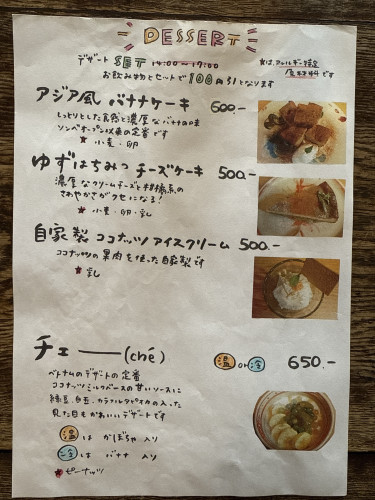 DESSERT
デザート SET 14:00〜17:00
お飲み物とセットで100円引となります
★は、アレルギー特定
原材料です
アジア風 バナナケーキ 600-
しっとりとした食感と濃厚なバナナの味
ソンベオープン以来の定番です
★ 小麦・卵
ゆずはちみつ チーズケーキ 500-
濃厚なクリームチーズと柑橘系の
さわやかさがクセになる!
★ 小麦・卵・乳
自家製 ココナッツアイスクリーム 500-
ココナッツの果肉を使った自家製です
★ 乳
チェー (ché) 温 or 冷 650-
ベトナムのデザートの定番
ココナッツミルクベースの甘いソースに
緑豆、白玉、カラフルタピオカの入った
見た目もかわいいデザートです
温 は かぼちゃ 入り
冷 は バナナ 入り
★ピーナッツ